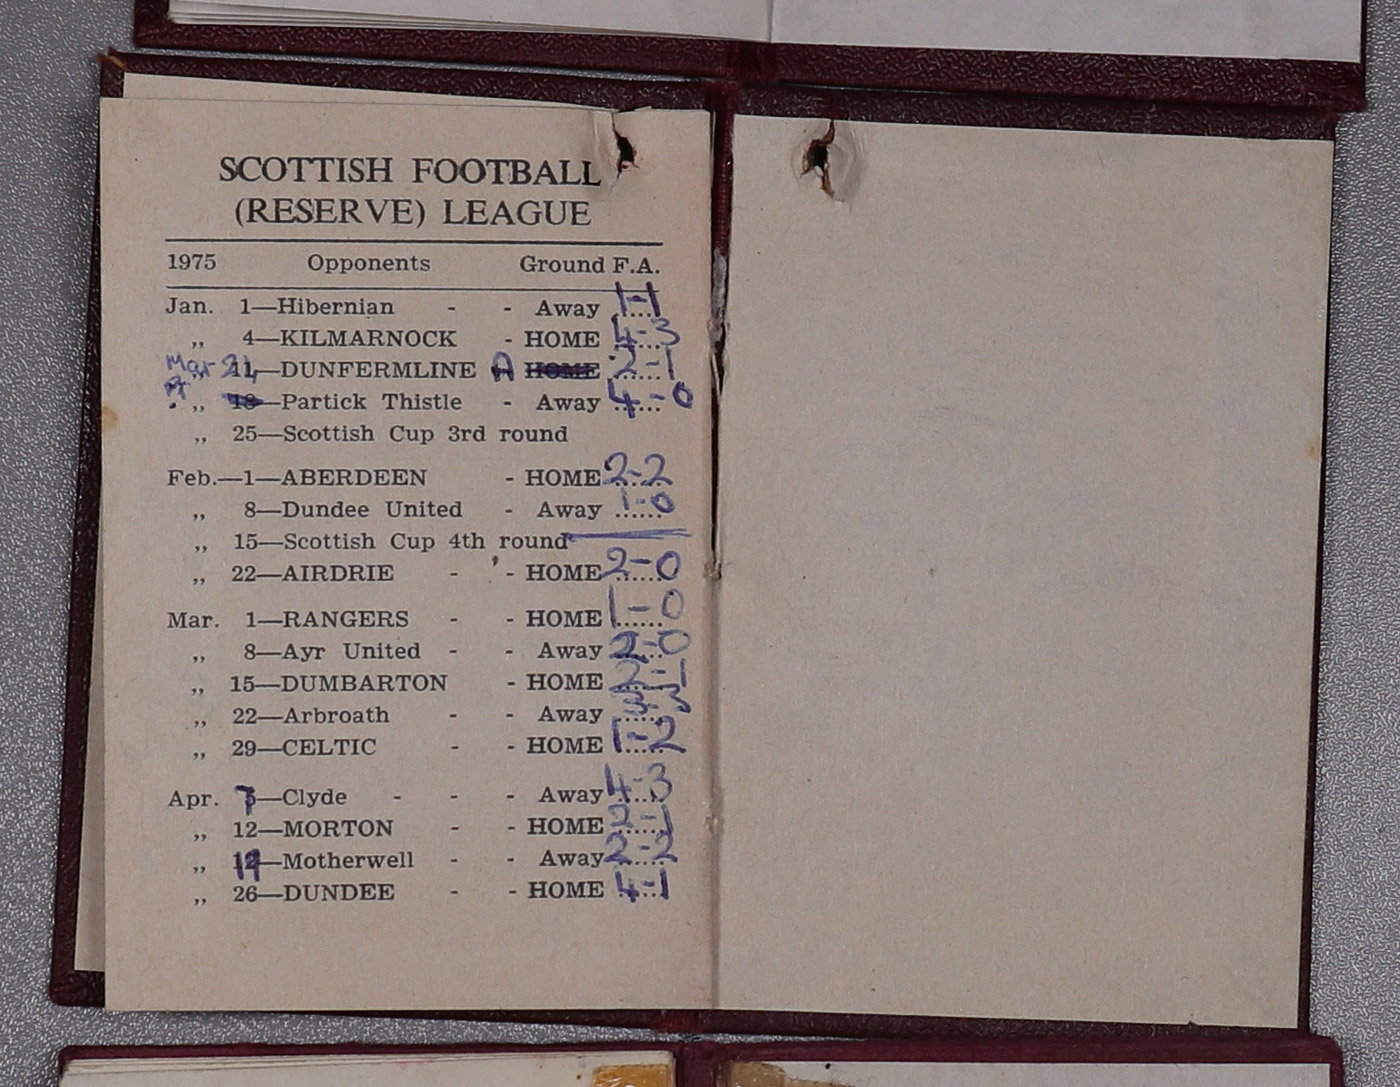 SCOTTISH FOOTBALL
(RESERVE) LEAGUE
1975 Opponents Ground F.A.
Jan. 1—Hibernian - - Away 1-1
„ 4—KILMARNOCK - HOME 4-3
Mar „ —DUNFERMLINE A HOME 2-1
„ 18—Partick Thistle - Away 4-0
„ 25—Scottish Cup 3rd round
Feb.—1—ABERDEEN - HOME 2-2
„ 8—Dundee United - Away 1-0
„ 15—Scottish Cup 4th round
„ 22—AIRDRIE - - HOME 2-0
Mar. 1—RANGERS - - HOME 1-0
„ 8—Ayr United - - Away 2-0
„ 15—DUMBARTON - HOME 2-1
„ 22—Arbroath - - Away 3-3
„ 29—CELTIC - - HOME 1-2
Apr. —Clyde - - - Away 4-3
„ 12—MORTON - - HOME 2-1
„ —Motherwell - - Away 2-2
„ 26—DUNDEE - - HOME 4-1